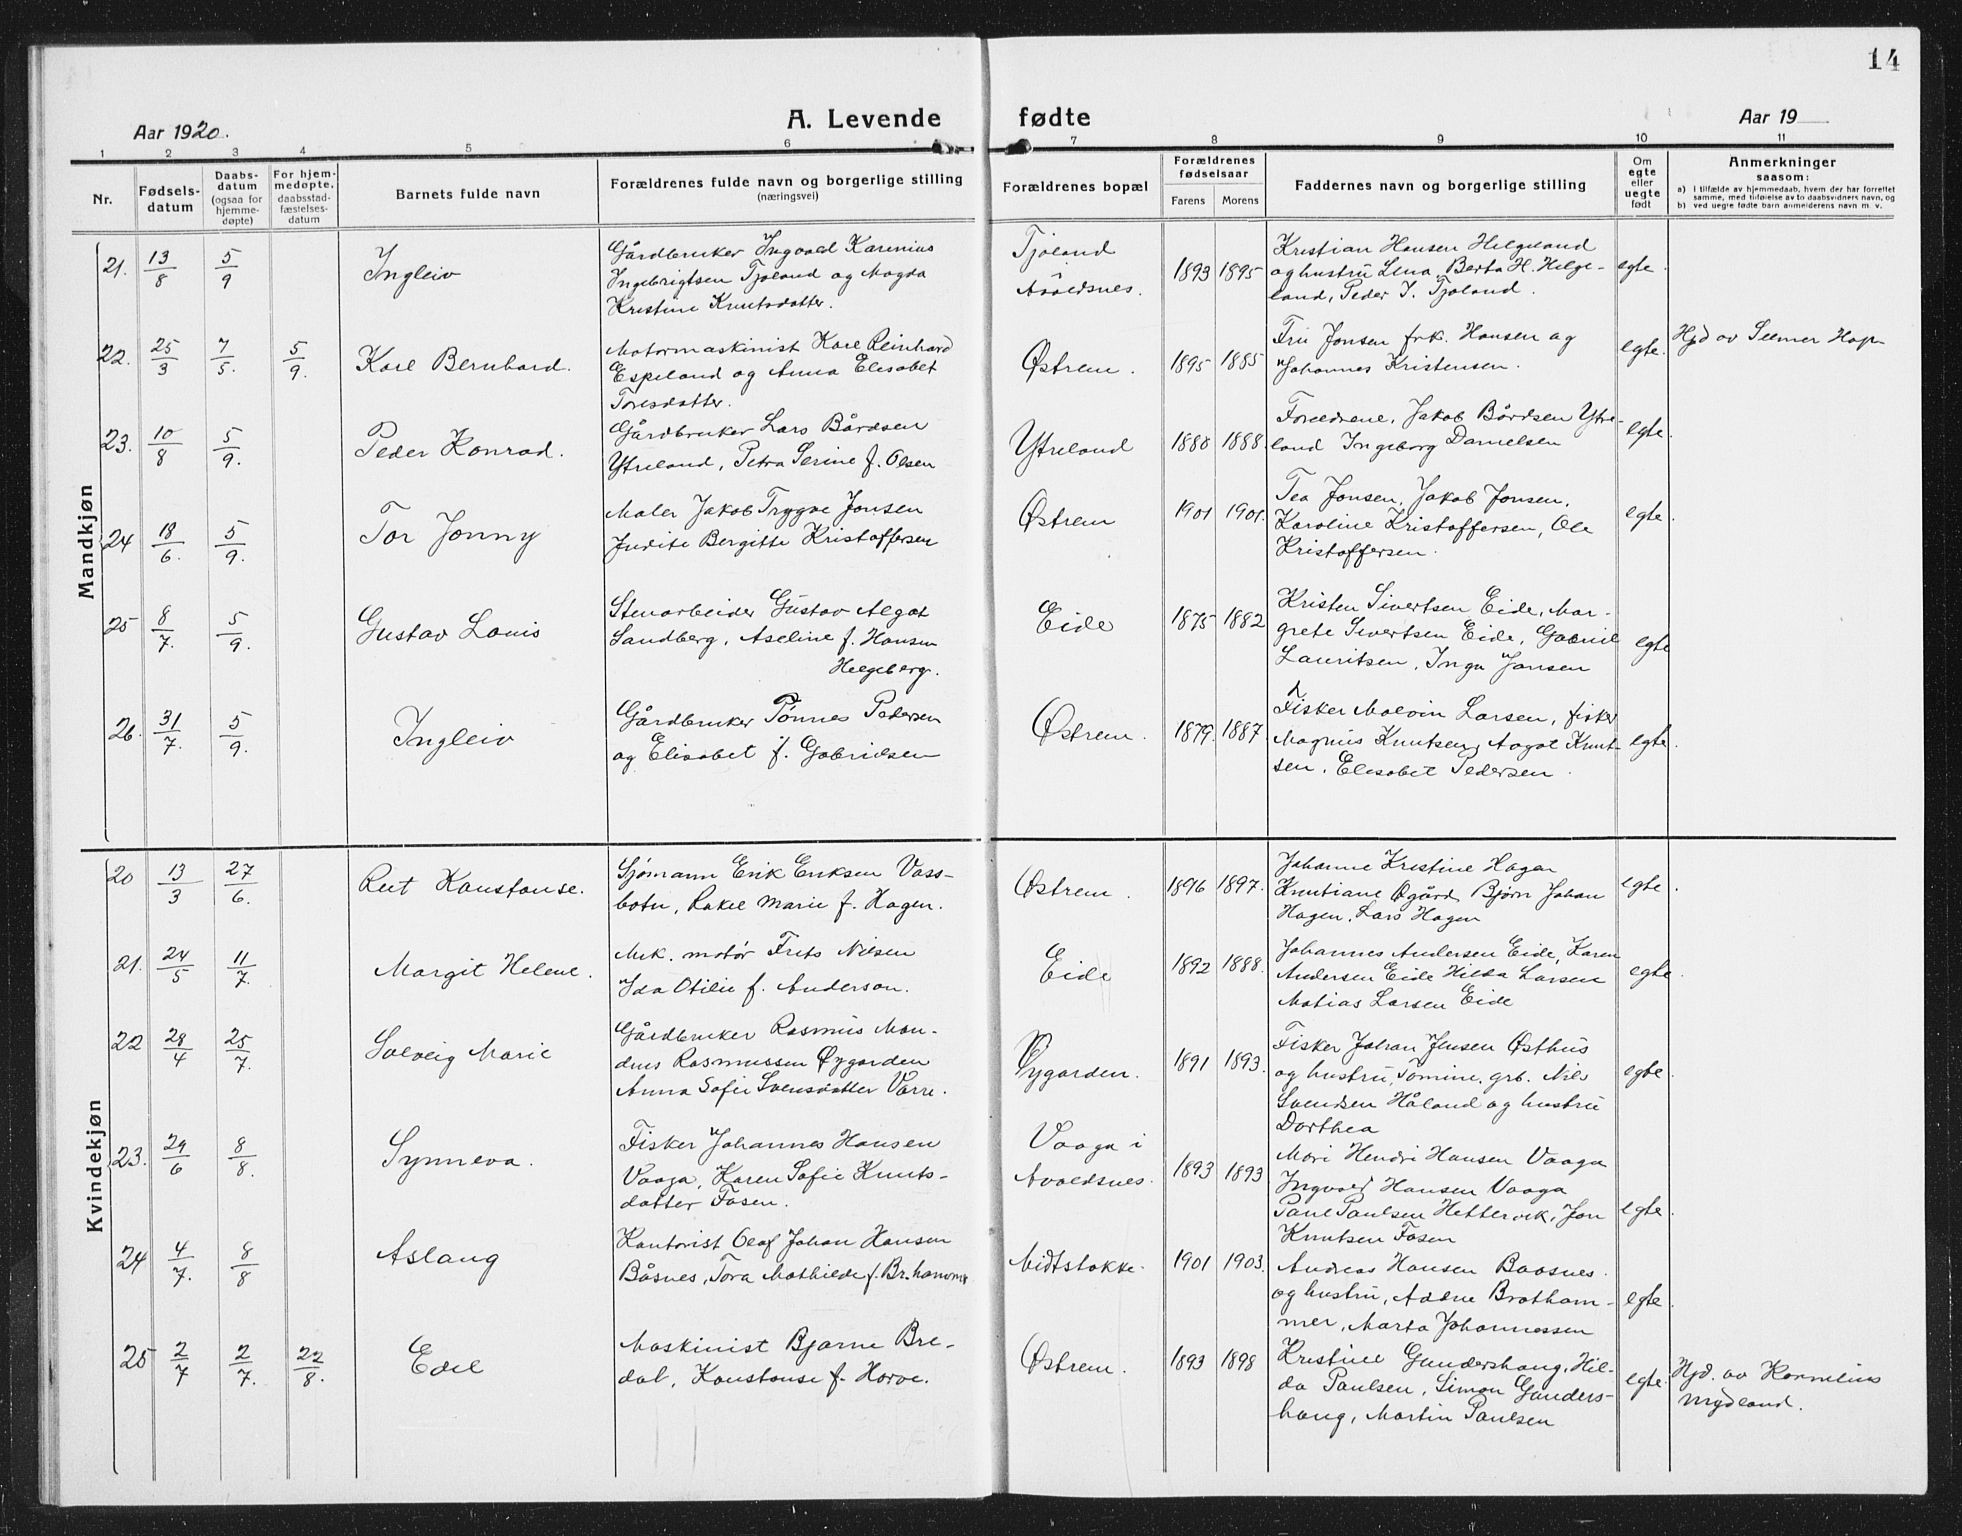 14
A. Levende fødte
Aar 1920.
Aar 19
1 2 3 4 5 6 7 8 9 10 11
Nr.
Fødsels-
datum
Daabs-
datum
(ogsaa for
hjemme-
døpte)
For hjem-
medøpte,
daabsstad-
fæstelses-
datum
Barnets fulde navn
Forældrenes fulde navn og borgerlige stilling
(næringsvei)
Forældrenes bopæl
Forældrenes
fødselsaar
Farens Morens
Faddernes navn og borgerlige stilling
Om
egte
eller
uegte
født
Anmerkninger
saasom:
a) I tilfælde av hjemmedaab, hvem der har forrettet
samme, med tilføielse av to daabsvidners navn, og
b) ved uegte fødte barn anmelderens navn m. v.
Mandkjøn
21. 13/8 5/9
Ingleiv
Gårdbruker Ingvald Karenius
Ingebrigtsen Tjoland og Magda
Kristine Knutsdatter.
Tjoland
Avaldsnes.
1893 1895
Kristian Hansen Helgeland
og hustru Lena, Berta H. Helge-
land, Peder I. Tjoland.
egte.
22. 25/3 7/5. 5/9.
Karl Bernhard.
Motormaskinist Karl Reinhard
Espeland og Anna Elisabet
Toresdatter.
Østrem.
1895 1885
Fru Jonsen frk. Hansen og
Johannes Kristensen.
egte.
Hjd av Selmer Hop-
23. 10/8 5/9.
Peder Konrad.
Gårdbruker Lars Bårdsen
Ytreland, Petra Serine f. Olsen
Ytreland
1880 1888.
Forældrene, Jakob Bårdsen Ytre-
land Ingeborg Danielsen
egte.
24 18/6. 5/9.
Tor Jonny
Maler Jakob Trygve Jonsen
Judite Bergitte Kristoffersen
Østrem
1901 1901.
Tea Jonsen, Jakob Jonsen,
Karoline Kristoffersen, Ole
Kristoffersen.
egte.
25 8/7. 5/9.
Gustav Louis
Stenarbeider Gustav Algot
Sandberg, Aseline f. Hansen
Helgeberg.
Eide
1875 1882
Kristen Sivertsen Eide, Mar-
grete Sivertsen Eide, Gabriel
Lauritsen, Inga Jansen
egte
26. 31/7. 5/9.
Ingleiv
Gårdbruker Tønnes Pedersen
og Elisabet f. Gabrielsen
Østrem.
1879. 1887.
Fisker Malvin Larsen, fisker
Magnus Knutsen, Aagot Knut-
sen, Elisabet Pedersen.
egte.
Kvindekjøn
20 13/3 27/6.
Rut Konstanse.
Sjømann Erik Eriksen Vass-
botn, Rakel Marie f. Hagen.
Østrem.
1896 1897.
Johanne Kristine Hagen
Knutiane Øgård, Bjørn Johan
Hagen, Lars Hagen
egte.
21. 24/5 11/7.
Margit Helene.
Mek. motør Frits Nilsen
Ida Otilie f. Anderson.
Eide
1892 1888.
Johannes Andersen Eide, Karen
Andersen Eide Hilda Larsen
Matias Larsen Eide
egte.
22 28/4 25/7.
Solveig Marie
Gårdbruker Rasmus Man-
dius Rasmussen Øygarden
Anna Sofie Svensdatter Varre.
Øygarden.
1891 1893.
Fisker Johan Jensen Østhus
og hustru, Tomine, grb. Nils
Svendsen Håland og hustru
Dorthea
egte.
23. 29/6 8/8.
Synneva.
Fisker Johannes Hansen
Vaaga, Karen Sofie Knuts-
datter Fosen.
Vaaga i
Avaldsnes.
1893 1893
Mari Hendri Hansen Vaaga
Ingvald Hansen Vaaga
Paul Paulsen Hettervik, Jon
Knutsen Fosen
egte.
24 4/7. 8/8
Aslaug
Kontorist Olaf Johan Hansen
Båsnes, Tora Mathilde f. Br.hammer
Midtstokke.
1901 1903.
Andreas Hansen Baasnes.
og hustru, Bratham-
mer, Marta Johannessen
egte.
25 2/7 2/7. 22/8.
Edel
Maskinist Bjarne Bre-
dal, Konstanse f. Horve.
Østrem.
1893 1898
Kristine Gundershaug, Hil-
da Paulsen, Simon Gunders-
haug, Martin Paulsen
egte.
Hjd. av Kornelius
Mydland.